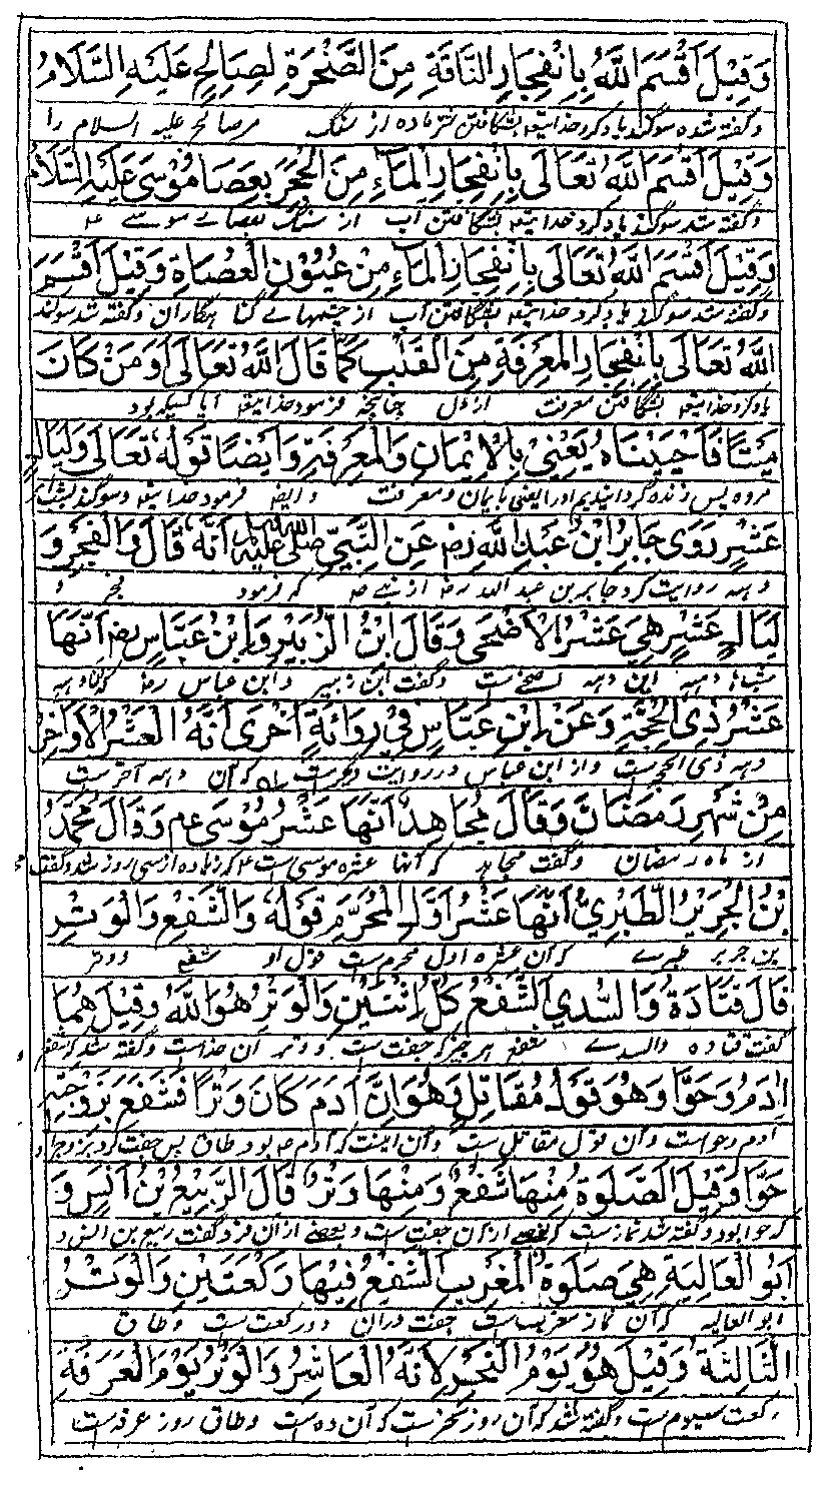 وَقِيْلَ اَقْسَمَ اللّٰهُ بِاِنْفِجَارِ النَّاقَةِ مِنَ الصَّخْرَةِ لِصِالِحٍ عَلَيْهِ السَّلَامُ
و گفته شده سوگند یاد کرد خدایتعالی بشگافتن شتر ماده از سنگ مر صالح علیه السلام را
وَقِيْلَ اَقْسَمَ اللّٰهُ تَعَالٰى بِاِنْفِجَارِ الْمَآءِ مِنَ الْحَجَرِ بِعَصَا مُوْسٰى عَلَيْهِ السَّلَام
و گفته شد سوگند یاد کرد خدایتعالی بشگافتن آب از سنگ بعصائے موسے ع
وَقِيْلَ اَقْسَمَ اللّٰهُ تَعَالٰى بِاِنْفِجَارِ الْمَآءِ مِنْ عُيُوْنِ الْعُصَاةِ وَقِيْلَ اَقْسَمَ
و گفته شد سوگند یاد کرد خدایتعالی بشگافتن آب از چشمهائے گناہگاران و گفته شد سوگند
اللّٰهُ تَعَالٰى بِاِنْفِجَارِ الْمَعْرِفَةِ مِنَ الْقَلْبِ كَمَا قَالَ اللّٰهُ تَعَالٰى اَوَمَنْ كَانَ
یاد کرد خدایتعالی بشگافتن معرفت از دل چنانچه فرمود خدایتعالی آیا کسیکه بود
مَيْتًا فَاَحْيَيْنَاهُ يَعْنِيْ بِالْاِيْمَانِ وَالْمَعْرِفَةِ وَاَيْضًا قَوْلُهٗ تَعَالٰى وَلَيَالٍ
مرده پس زنده گردانیدیم او را یعنی بایمان و معرفت و ایضا فرمود خدایتعالی و سوگند بشبهائے
عَشْرٍ رَوٰى جَابِرُ ابْنُ عَبْدِ اللّٰهِ رَضٖ عَنِ النَّبِيِّ صَلَّى اللّٰهُ عَلَيْهِ وَسَلَّمَ اَنَّهٗ قَالَ وَالْفَجْرِ وَ
دہہ روایت کرد جابر بن عبد اللہ رض از نبے ص کہ فرمود فجر و
لَيَالٍ عَشْرٍ هِيَ عَشْرُ الْاَضْحٰى وَقَالَ ابْنُ الزُّبَيْرِ وَابْنُ عَبَّاسٍ رض اَنَّهَا
شبہاے دہہ این دہہ اضحے است و گفت ابن زبیر و ابن عباس رض کہ آن دہہ
عَشْرُ ذِى الْحِجَّةِ وَعَنْ ابْنِ عَبَّاسٍ فِيْ رِوَايَةٍ اُخْرٰى اَنَّهُ الْعَشْرُ الْاَوَاخِرُ
دہہ ذی الحجہ است و از ابن عباس در روایت دیگر است کہ آن دہہ آخر است
مِنْ شَهْرِ رَمَضَانَ وَقَالَ مُجَاهِدٌ اَنَّهَا عَشْرُ مُوْسٰى عم وَقَالَ مُحَمَّدُ
از ماہ رمضان و گفت مجاہد کہ آنہا عشرہ موسی است ع کہ زیادہ از سی روز شد و گفت
بْنُ الْجَرِيْرِ الطَّبَرِيُّ اَنَّهَا عَشْرُ اَوَّلِ الْمُحَرَّمِ قَوْلُهٗ وَالشَّفْعِ وَالْوَتْرِ
بن جریر طبرے کہ آن عشرہ اول محرم است قول او شفع و وتر
قَالَ قَتَادَةُ وَالسُّدِّي الشَّفْعُ كُلُّ اثْنَيْنِ وَالْوَتْرُ هُوَ اللّٰهُ وَقِيْلَ هُمَا
گفت قتادہ والسدے شفع ہر چیز کہ جفت است و وتر آن خداست و گفته شد کہ شفع و
اٰدَمُ وَحَوَّا وَهُوَ قَوْلُ مُقَاتِلٍ وَهُوَ اِنَّ اٰدَمَ كَانَ وَتْرًا فَشَفَعَ بِزَوْجَتِهٖ
آدم و حوا است و آن قول مقاتل است و آن اینست کہ آدم ع بود طاق پس جفت کرد بزوجہ او
حَوَّا وَقِيْلَ الصَّلٰوةُ مِنْهَا شَفْعٌ وَمِنْهَا وَتْرٌ قَالَ الرَّبِيْعُ بْنُ اَنَسٍ وَ
کہ حوا بود و گفته شد نماز است کہ بعضے ازان جفت است و بعضے ازان فرد گفت ربیع بن انس و
اَبُو الْعَالِيَةِ هِيَ صَلٰوةُ الْمَغْرِبِ الشَّفْعُ فِيْهَا رَكْعَتَيْنِ وَالْوَتْرُ
ابو العالیہ کہ آن نماز مغرب است جفت دران دو رکعت است و طاق
الثَّالِثَةُ وَقِيْلَ هُوَ يَوْمُ النَّحْرِ لِاَنَّهُ الْعَاشِرُ وَالْوَتْرُ يَوْمُ الْعَرَفَةِ
رکعت سیوم است و گفته شد کہ آن روز نحر است کہ آن دہ است و طاق روز عرفہ است